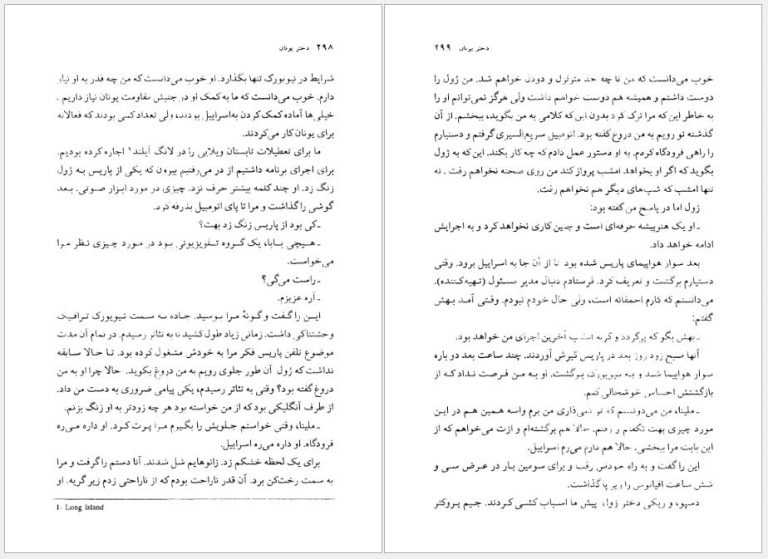 ۲۹۸ دختر یونان
شرایط در نیویورک تنها بگذارد. او خوب می‌دانست که من چه قدر به او نیاز
دارم. خوب می‌دانست که ما به کمک او در جنبش مقاومت یونان نیاز داریم.
خیلی‌ها آماده کمک کردن به اسراییل بودند، ولی تعداد کمی بودند که فعالانه
برای یونان کار می‌کردند.
ما برای تعطیلات تابستان ویلایی را در لانگ آیلند۱ اجاره کرده بودیم.
برای اجرای برنامه داشتیم از در می‌رفتیم بیرون که یکی از پاریس به ژول
زنگ زد. او چند کلمه بیشتر حرف نزد. چیزی در مورد ابزار صوتی. بعد
گوشی را گذاشت و مرا تا پای اتومبیل بدرقه کرد.
ـ کی بود از پاریس زنگ زد بهت؟
ـ هیچی بابا، یک گروه تلویزیونی بود در مورد چیزی نظر مرا
می‌خواست.
ـ راست می‌گی؟
ـ آره عزیزم.
این را گفت و گونهٔ مرا بوسید. جاده به سمت نیویورک ترافیک
وحشتناکی داشت. زمانی زیاد طول کشید تا به تئاتر رسیدم. در تمام آن مدت
موضوع تلفن پاریس فکر مرا به خودش مشغول کرده بود. تا حالا سابقه
نداشت که ژول آن طور جلوی رویم به من دروغ بگوید. حالا چرا او به من
دروغ گفته بود؟ وقتی به تئاتر رسیدم، یکی پیامی ضروری به دست من داد.
از طرف آنگلیکی بود که از من خواسته بود هر چه زودتر به او زنگ بزنم.
ـ ملینا، وقتی خواستم جلویش را بگیرم مرا پرت کرد. او داره می‌ره
فرودگاه. او داره می‌ره اسراییل.
برای یک لحظه خشکم زد. زانوهایم شل شدند. آنا دستم را گرفت و مرا
به سمت رخت‌کن برد. آن قدر ناراحت بودم که از ناراحتی زدم زیر گریه. او
1- Long Island
دختر یونان ۲۹۹
خوب می‌دانست که من تا چه حد متزلزل و دودل خواهم شد. من ژول را
دوست داشتم و همیشه هم دوست خواهم داشت ولی هرگز نمی‌توانم او را
به خاطر این که مرا ترک کرد بدون این که کلامی به من بگوید، ببخشم. از آن
گذشته تو رویم به من دروغ گفته بود. اتومبیل سریع‌السیری گرفتم و دستیارم
را راهی فرودگاه کردم. به او دستور عمل دادم که چه کار بکند. این که به ژول
بگوید که اگر او بخواهد امشب پرواز کند من روی صحنه نخواهم رفت. نه
تنها امشب که شب‌های دیگر هم نخواهم رفت.
ژول اما در پاسخ من گفته بود:
ـ او یک هنرپیشه حرفه‌ای است و چنین کاری نخواهد کرد و به اجرایش
ادامه خواهد داد.
بعد سوار هواپیمای پاریس شده بود تا از آن جا به اسراییل برود. وقتی
دستیارم برگشت و تعریف کرد، فرستادم دنبال مدیر مسئول (تهیه‌کننده).
می‌دانستم که کارم احمقانه است، ولی حال خودم نبودم. وقتی آمد بهش
گفتم:
ـ بهش بگو که برگردد و گرنه امشب آخرین اجرای من خواهد بود.
آنها صبح زود روز بعد در پاریس گیرش آوردند. چند ساعت بعد دو باره
سوار هواپیما شد و به نیویورک برگشت. او به من فرصت نداد که از
بازگشتش احساس خوشحالی کنم.
ـ ملینا، من می‌دونستم که تو نمی‌ذاری من برم واسه همین هم در این
مورد چیزی بهت نگفتم و رفتم. حالا هم برگشته‌ام و ازت می‌خواهم که از
این بابت مرا ببخشی. حالا هم دارم می‌رم اسراییل.
این را گفت و به راه خودش رفت و برای سومین بار در عرض سی و
شش ساعت اقیانوس را زیر پا گذاشت.
دسپو، و ریکی دختر ژول، پیش ما اسباب کشی کردند. جیم پروکتر